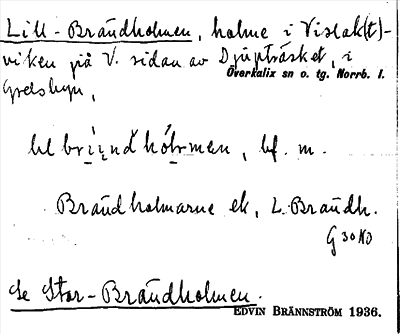 Lill-Brändholmen, holme i Vislak(t)-
viken på V. sidan av Djupträsket, i
Överkalix sn o. tg. Norrb. l.
Grelsbyn,
bf. m.
Brändholmarne ek, L. Brändh.
G 30 KD
Se Stor-Brändholmen.
EDVIN BRÄNNSTRÖM 1936.